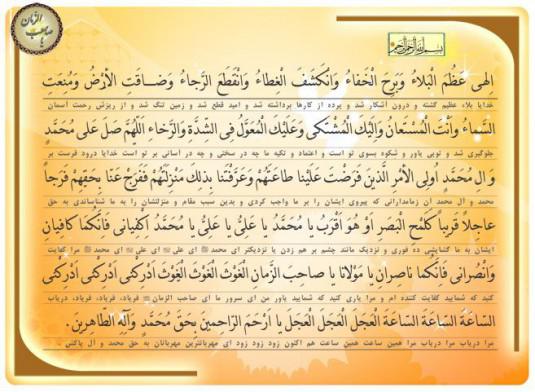 يا صاحب الزمان
بسم الله الرحمن الرحيم
اِلهى عَظُمَ الْبَلاءُ وَبَرِحَ الْخَفاءُ وَانْكَشَفَ الْغِطاءُ وَانْقَطَعَ الرَّجاءُ وَضاقَتِ الاْرْضُ وَمُنِعَتِ
خدایا بلاء عظیم گشته و درون آشکار شد و پرده از کارها برداشته شد و امید قطع شد و زمین تنگ شد و از ریزش رحمت آسمان
السَّماءُ وَاَنْتَ الْمُسْتَعانُ وَاِلَيْكَ الْمُشْتَكى وَعَلَيْكَ الْمُعَوَّلُ فِى الشِّدَّةِ وَالرَّخاءِ اَللّهُمَّ صَلِّ عَلى مُحَمَّدٍ
جلوگیری شد و تویی یاور و شکوه بسوی تو است و اعتماد و تکیه ما چه در سختی و چه در آسانی بر تو است خدایا درود فرست بر
وَالِ مُحَمَّدٍ اُولِى الاْمْرِ الَّذينَ فَرَضْتَ عَلَيْنا طاعَتَهُمْ وَعَرَّفْتَنا بِذلِكَ مَنْزِلَتَهُمْ فَفَرِّجْ عَنّا بِحَقِّهِمْ فَرَجاً
محمد و آل محمد آن زمامدارانی که پیروی ایشان را بر ما واجب کردی و بدین سبب مقام و منزلتشان را به ما شناساندی به حق
عاجِلاً قَريباً كَلَمْحِ الْبَصَرِ اَوْ هُوَ اَقْرَبُ يا مُحَمَّدُ يا عَلِىُّ يا عَلِىُّ يا مُحَمَّدُ اِكْفِيانى فَاِنَّكُما كافِيانِ
ایشان به ما گشایشی ده فوری و نزدیک مانند چشم بر هم زدن یا نزدیکتر ای محمد ای علی ای علی ای محمد مرا کفایت
وَانْصُرانى فَاِنَّكُما ناصِرانِ يا مَوْلانا يا صاحِبَ الزَّمانِ الْغَوْثَ الْغَوْثَ الْغَوْثَ اَدْرِكْنى اَدْرِكْنى اَدْرِكْنى
کنید که شمایید کفایت کننده ام و مرا یاری کنید که شمایید یاور من ای سرور ما ای صاحب الزمان فریاد، فریاد، فریاد، دریاب
السّاعَةَ السّاعَةَ السّاعَةَ الْعَجَلَ الْعَجَلَ الْعَجَلَ يا اَرْحَمَ الرّاحِمينَ بِحَقِّ مُحَمَّدٍ وَآلِهِ الطّاهِرينَ.
مرا دریاب مرا دریاب مرا همین ساعت همین ساعت هم اکنون زود زود زود ای مهربانترین مهربانان به حق محمد و آل پاکش